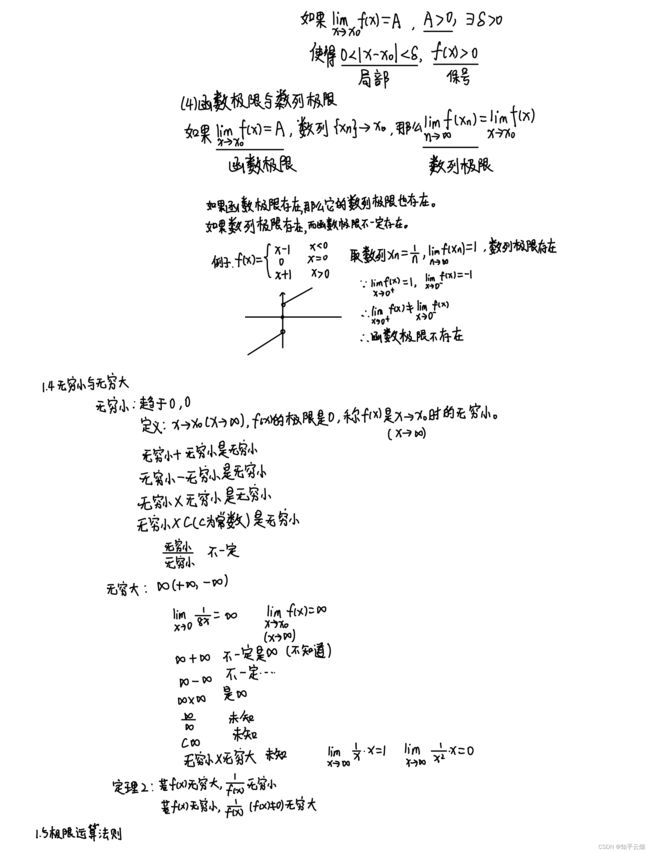 如果 lim f(x)=A , A>0, ∃δ>0
x→x₀
使得 0<|x-x₀|<δ, f(x)>0
局部 保号
(4)函数极限与数列极限
如果 lim f(x)=A, 数列{xn}→x₀, 那么 lim f(xn)=lim f(x)
x→x₀ n→∞ x→x₀
函数极限 数列极限
如果函数极限存在,那么它的数列极限也存在。
如果数列极限存在,而函数极限不一定存在。
例子. f(x)={ x-1 x<0
0 x=0
x+1 x>0
取数列xn=1/n, lim f(xn)=1 , 数列极限存在
n→∞
∵ lim f(x)=1, lim f(x)=-1
x→0⁺ x→0⁻
∴ lim f(x)≠lim f(x)
x→0⁺ x→0⁻
∴函数极限不存在
1.4 无穷小与无穷大
无穷小: 趋于0, 0
定义: x→x₀(x→∞), f(x)的极限是0, 称f(x)是x→x₀时的无穷小。
(x→∞)
无穷小+无穷小是无穷小
无穷小-无穷小是无穷小
无穷小×无穷小是无穷小
无穷小×C(C为常数)是无穷小
无穷小/无穷小 不一定
无穷大: ∞(+∞, -∞)
lim 1/8x = ∞ lim f(x)=∞
x→0 x→x₀
(x→∞)
∞+∞ 不一定是∞ (不知道)
∞-∞ 不一定…
∞×∞ 是∞
∞/∞ 未知
C∞ 未知
无穷小×无穷大 未知 lim 1/x·x=1 lim 1/x²·x=0
x→∞ x→∞
定理2: 若f(x)无穷大, 1/f(x)无穷小
若f(x)无穷小, 1/f(x) (f(x)≠0)无穷大
1.5极限运算法则
CSDN @知乎云烟